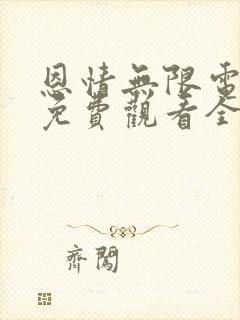 恩情無限電
免費觀看全
齊闖